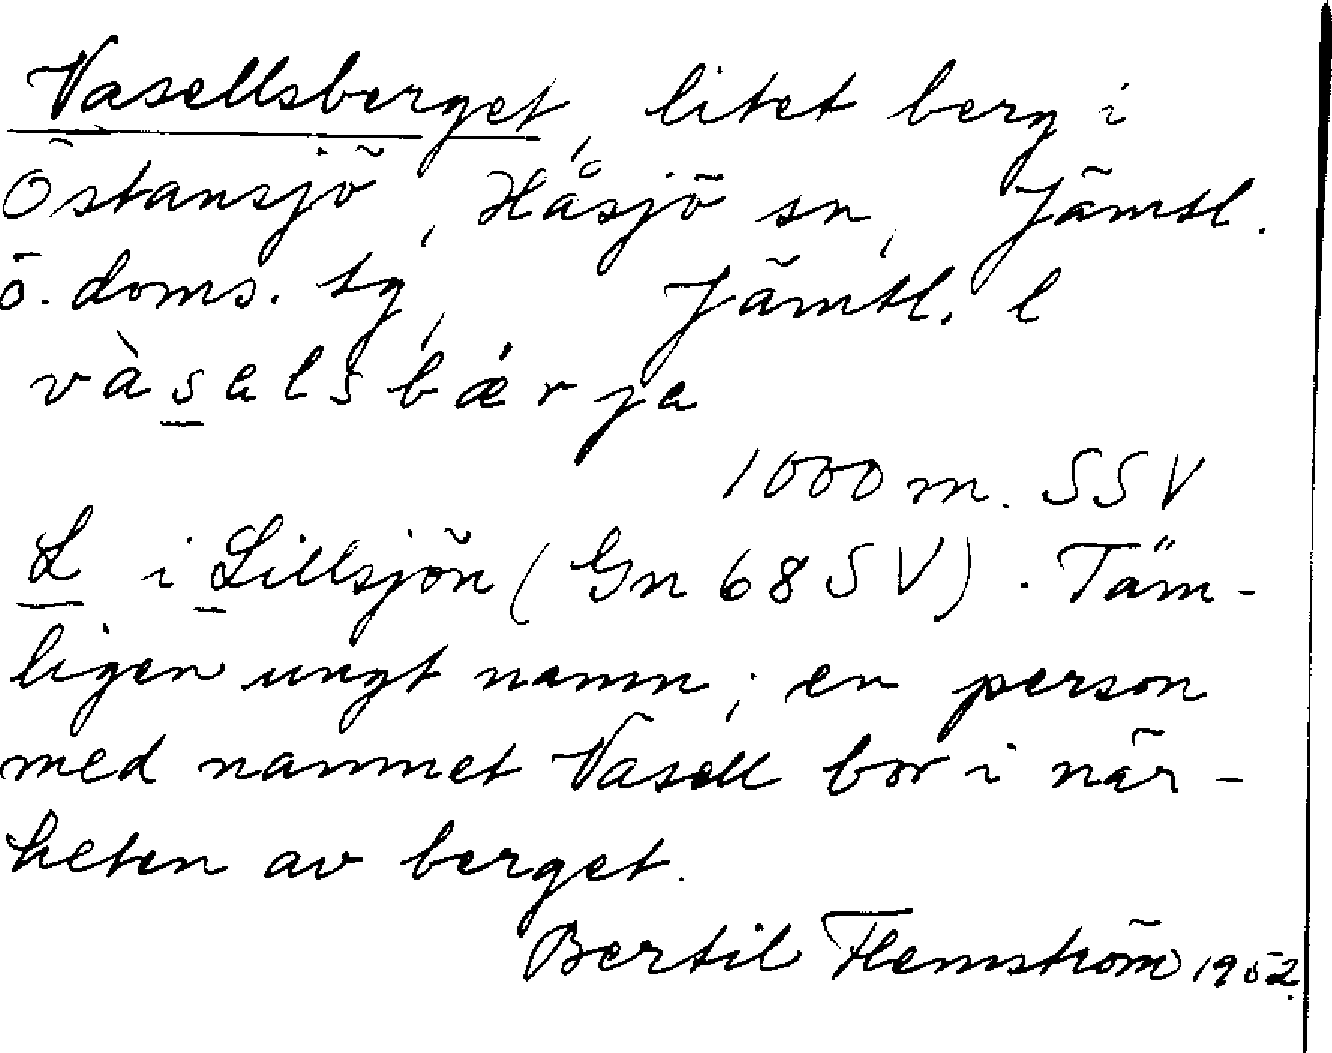 Vasellsberget, litet berg i
Östansjö, Håsjö sn, Jämtl.
ö. doms. tg, Jämtl. l
vàsalsbǽrja
1000 m. SSV
L i Lillsjön (Gn 68 SV). Täm-
ligen ungt namn; en person
med namnet Vasell bor i när-
heten av berget.
Bertil Flemström 1952.